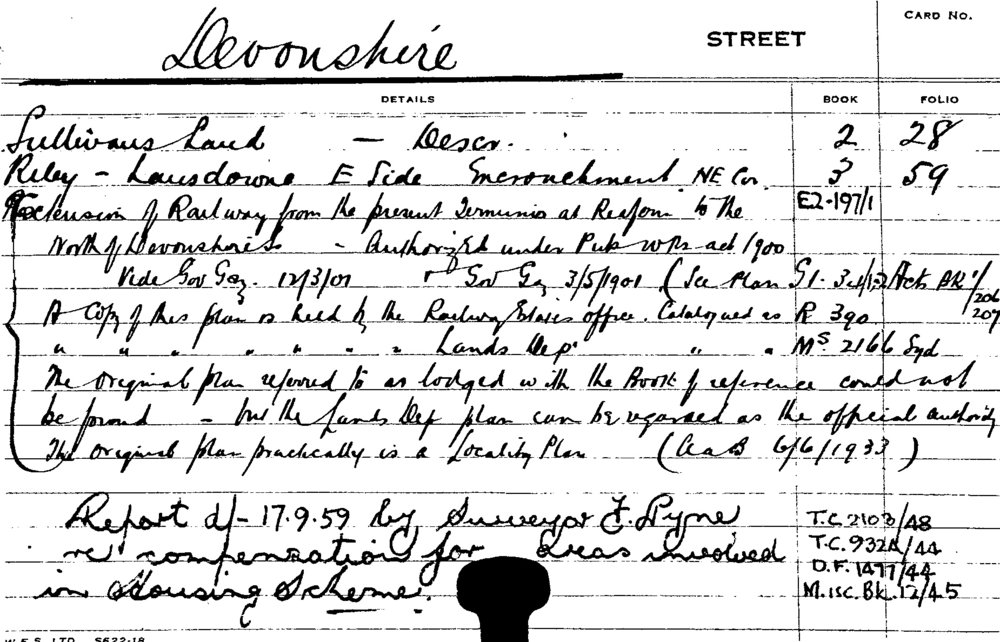 CARD No.
Devonshire STREET
DETAILS BOOK FOLIO
Sullivans Land — Descr. 2 28
Riley - Lansdowne E Side Encroachment NE Cor. 3 59
Extension of Railway from the present Terminus at Redfern to the E2-197/1
North of Devonshire St - Authorized under Pub Wks act 1900
Vide Gov Gaz. 12/3/01 & Gov Gaz 3/5/1901 (See Plan S1. Acts BK 1/206
207
A Copy of this plan is held by the Railway Estates office. Catalogued as R 390
" " " " " " " Lands Dep " " Ms 2166 Syd
The original plan referred to as lodged with the Book of reference could not
be found - but the Lands Dep plan can be regarded as the official authority
The original plan practically is a Locality Plan (AaB 6/6/1933)
Report d/- 17.9.59 by Surveyor F. Pyne T.C. 2103/48
re compensation for areas involved T.C. 932A/44
in Housing Scheme. D.F. 1477/44
Misc. Bk. 12/45
W.E.S. LTD. S622-18